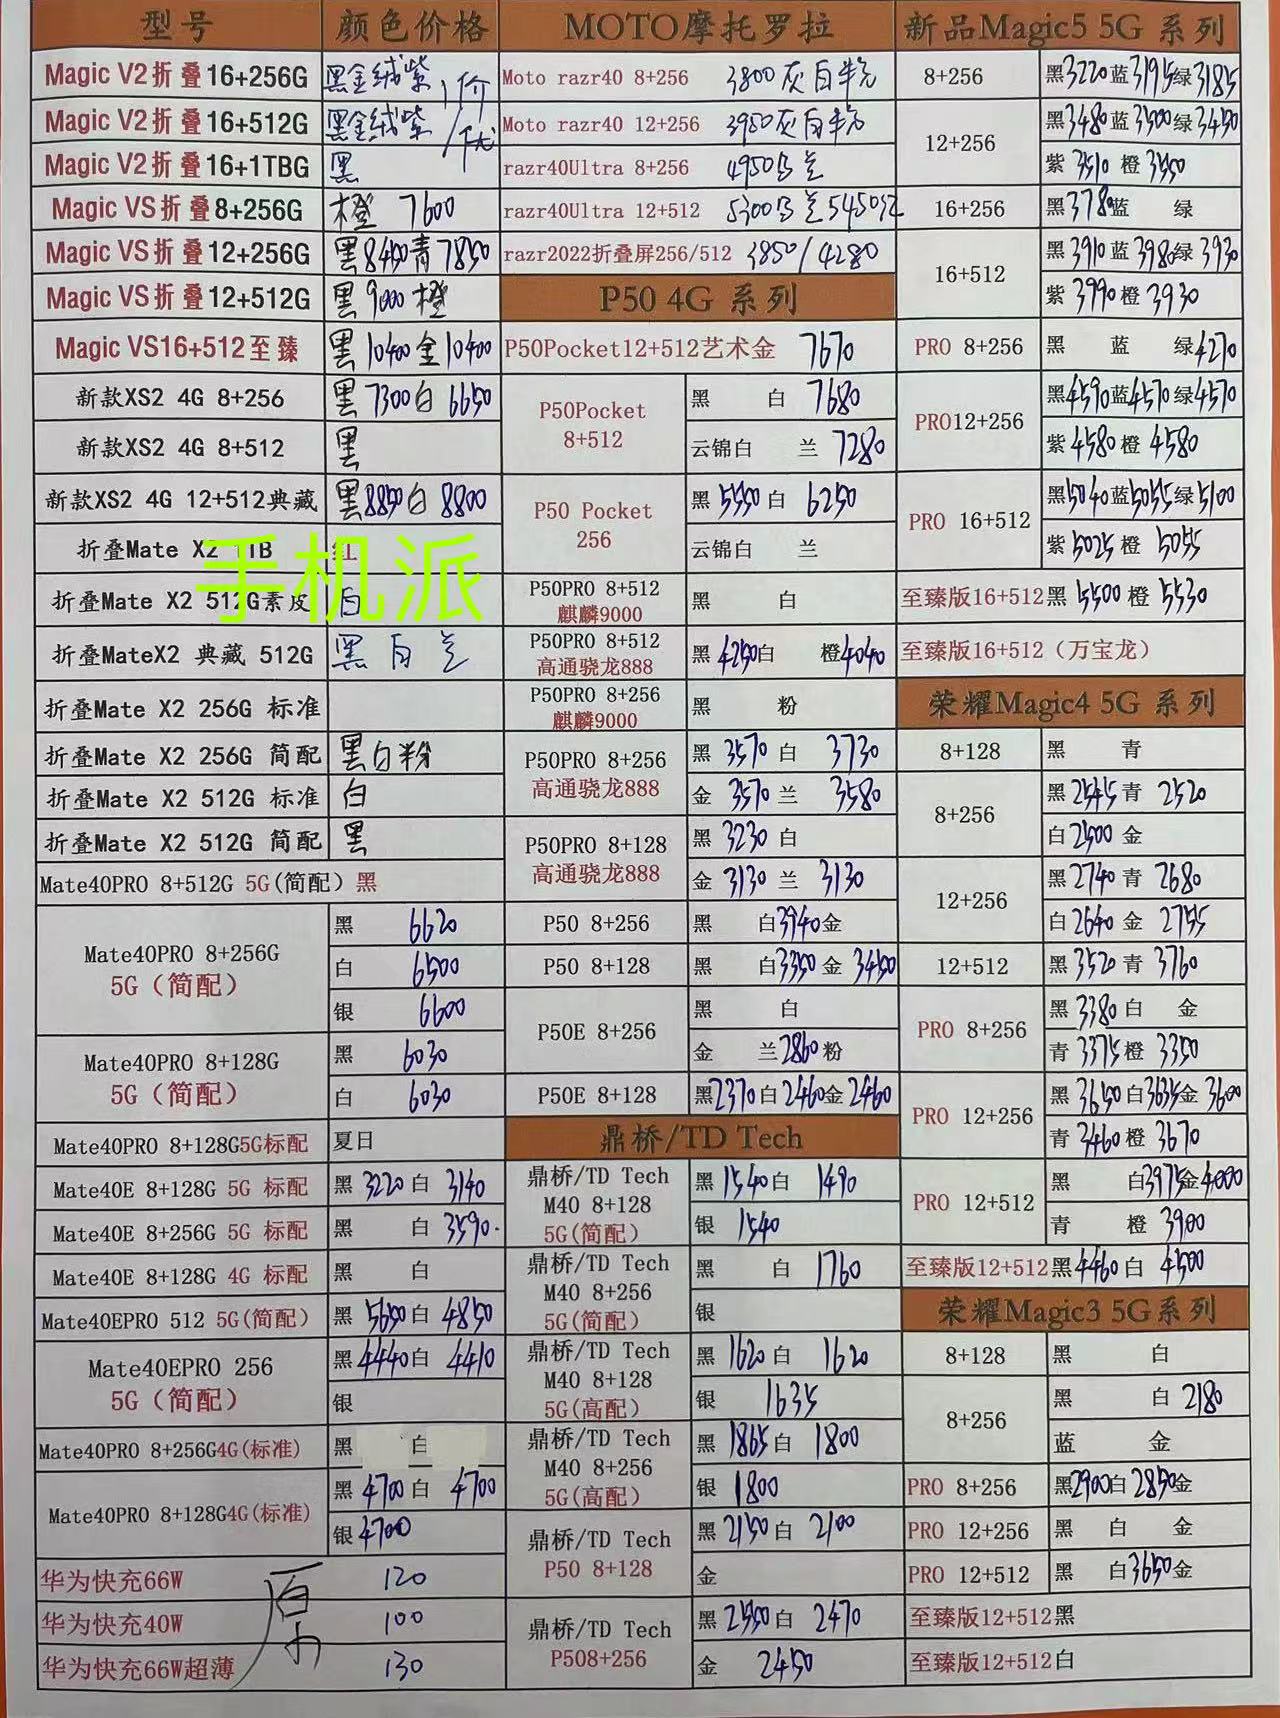 型号 颜色价格
Magic V2折叠16+256G 黑金绒紫 1价
Magic V2折叠16+512G 黑金绒紫
Magic V2折叠16+1TBG 黑
Magic VS折叠8+256G 橙 7600
Magic VS折叠12+256G 黑8450青7850
Magic VS折叠12+512G 黑9000橙
Magic VS16+512至臻 黑10400金10400
新款XS2 4G 8+256 黑7300白6650
新款XS2 4G 8+512 黑
新款XS2 4G 12+512典藏 黑8850白8800
折叠Mate X2 1TB 红
手机派
折叠Mate X2 512G素皮 白
折叠MateX2 典藏 512G 黑白兰
折叠Mate X2 256G 标准
折叠Mate X2 256G 简配 黑白粉
折叠Mate X2 512G 标准 白
折叠Mate X2 512G 简配 黑
Mate40PRO 8+512G 5G(简配）黑
Mate40PRO 8+256G
5G（简配）
黑 6620
白 6500
银 6600
Mate40PRO 8+128G
5G（简配）
黑 6030
白 6030
Mate40PRO 8+128G5G标配 夏日
Mate40E 8+128G 5G 标配 黑3220白3140
Mate40E 8+256G 5G 标配 黑 白3590.
Mate40E 8+128G 4G 标配 黑 白
Mate40EPRO 512 5G(简配) 黑5650白4850
Mate40EPRO 256
5G（简配）
黑4440白4410
银
Mate40PRO 8+256G4G(标准) 黑 白
Mate40PRO 8+128G4G(标准)
黑4700白4700
银4700
华为快充66W 120
华为快充40W 100
华为快充66W超薄 130
MOTO摩托罗拉
Moto razr40 8+256 3800灰白
Moto razr40 12+256 3950灰白
razr40Ultra 8+256 4950 兰
razr40Ultra 12+512 5300 兰5450红
razr2022折叠屏256/512 3850/4280
P50 4G 系列
P50Pocket12+512艺术金 7670
P50Pocket
8+512
黑 白 7680
云锦白 兰 7280
P50 Pocket
256
黑5550白 6250
云锦白 兰
P50PRO 8+512
麒麟9000
黑 白
P50PRO 8+512
高通骁龙888
黑4250白 橙4040
P50PRO 8+256
麒麟9000
黑 粉
P50PRO 8+256
高通骁龙888
黑3570白 3730
金3570兰 3580
P50PRO 8+128
高通骁龙888
黑3230白
金3130兰 3130
P50 8+256 黑 白3940金
P50 8+128 黑 白3350金3450
P50E 8+256
黑 白
金 兰2860粉
P50E 8+128 黑2370白2460金2460
鼎桥/TD Tech
鼎桥/TD Tech
M40 8+128
5G(简配）
黑1540白 1490
银 1540
鼎桥/TD Tech
M40 8+256
5G(简配）
黑 白 1760
银
鼎桥/TD Tech
M40 8+128
5G(高配）
黑1620白 1620
银 1635
鼎桥/TD Tech
M40 8+256
5G(高配）
黑1865白 1800
银1800
鼎桥/TD Tech
P50 8+128
黑2150白 2100
金
鼎桥/TD Tech
P508+256
黑2550白 2470
金 2450
新品Magic5 5G 系列
8+256 黑3220蓝3195绿3185
12+256
黑3480蓝3500绿3450
紫3510橙3550
16+256 黑3780蓝 绿
16+512
黑3910蓝3980绿3930
紫3990橙3930
PRO 8+256 黑 蓝 绿4270
PRO12+256
黑4590蓝4570绿4570
紫4580橙4580
PRO 16+512
黑5040蓝5055绿5100
紫5025橙5055
至臻版16+512黑5500橙5530
至臻版16+512（万宝龙）
荣耀Magic4 5G 系列
8+128 黑 青
8+256
黑2545青 2520
白2500金
12+256
黑2740青 2680
白2640金 2755
12+512 黑3520青 3760
PRO 8+256
黑3380白 金
青3375橙 3350
PRO 12+256
黑3650白3635金3600
青3460橙3670
PRO 12+512
黑 白3975金4000
青 橙3900
至臻版12+512黑4460白 4500
荣耀Magic3 5G系列
8+128 黑 白
8+256
黑 白2180
蓝 金
PRO 8+256 黑2900白2850金
PRO 12+256 黑 白 金
PRO 12+512 黑 白3650金
至臻版12+512黑
至臻版12+512白